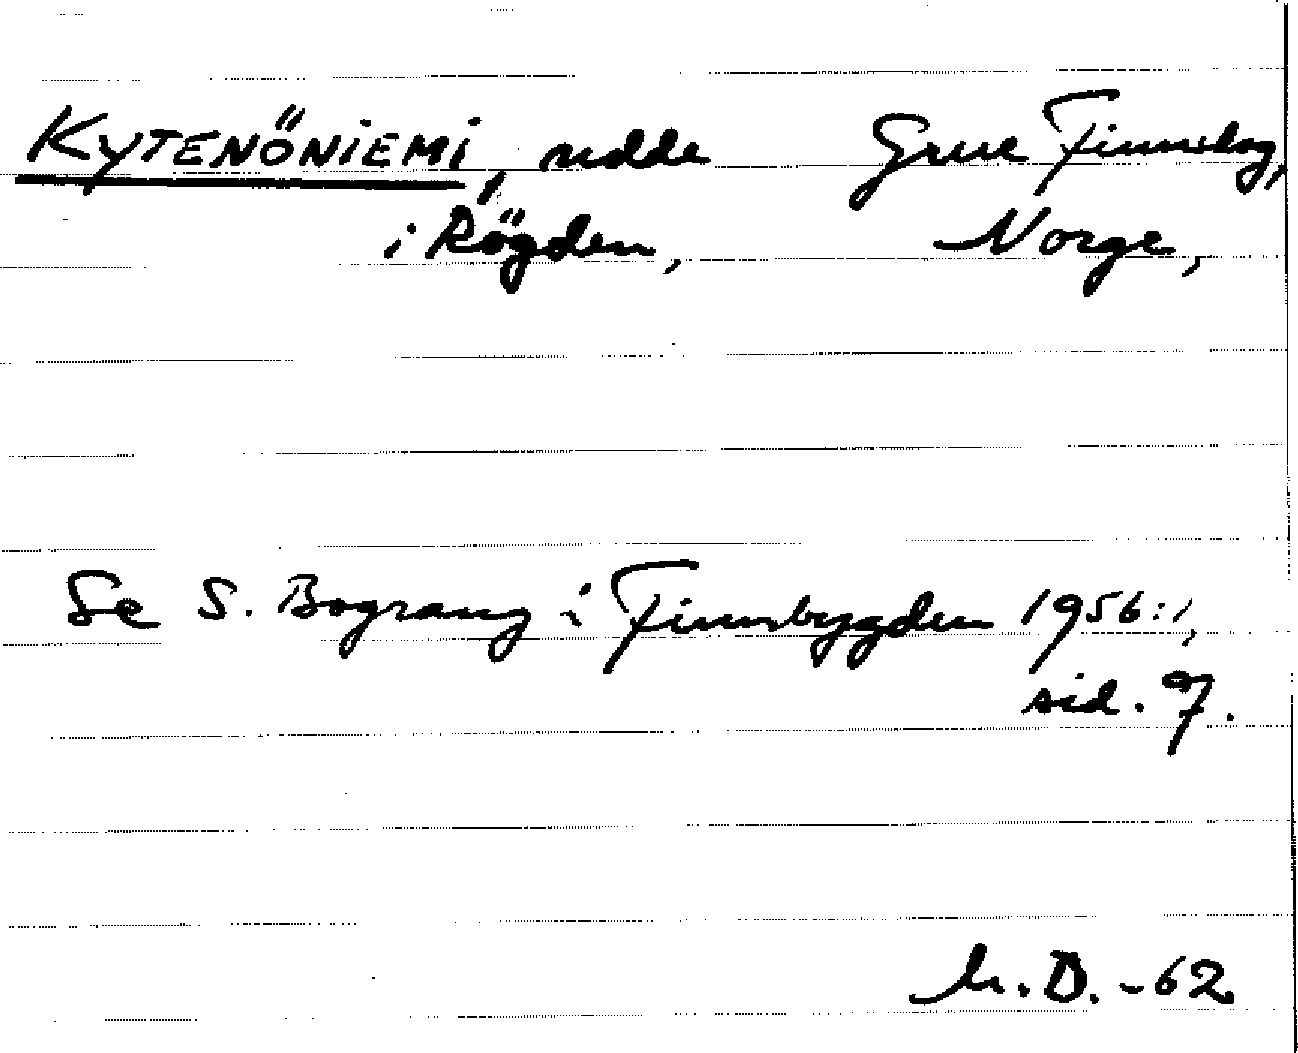 KYTENÖNIEMI, udde Grue Finnskog,
i Rögden, Norge,
Se S. Bograng i Finnbygden 1956:1,
sid. 7.
h.D. -62